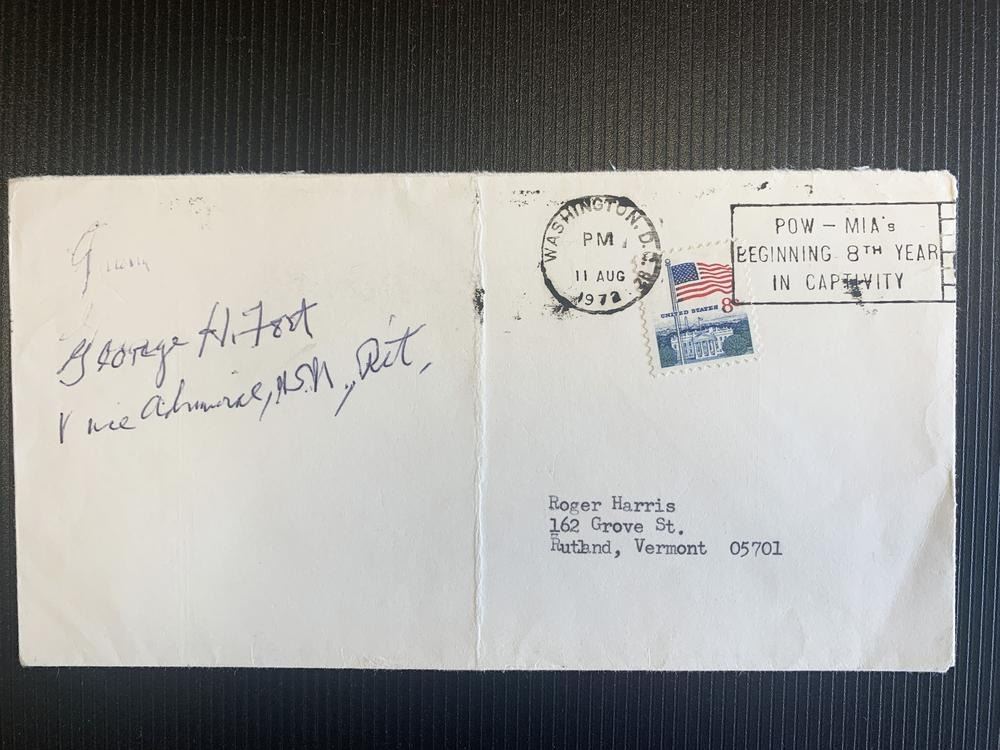 George H. Fort
Vice Admiral, U.S.N., Ret.
WASHINGTON, D.C.
PM
11 AUG
1972
POW – MIA's
BEGINNING 8TH YEAR
IN CAPTIVITY
UNITED STATES 8c
Roger Harris
162 Grove St.
Rutland, Vermont 05701